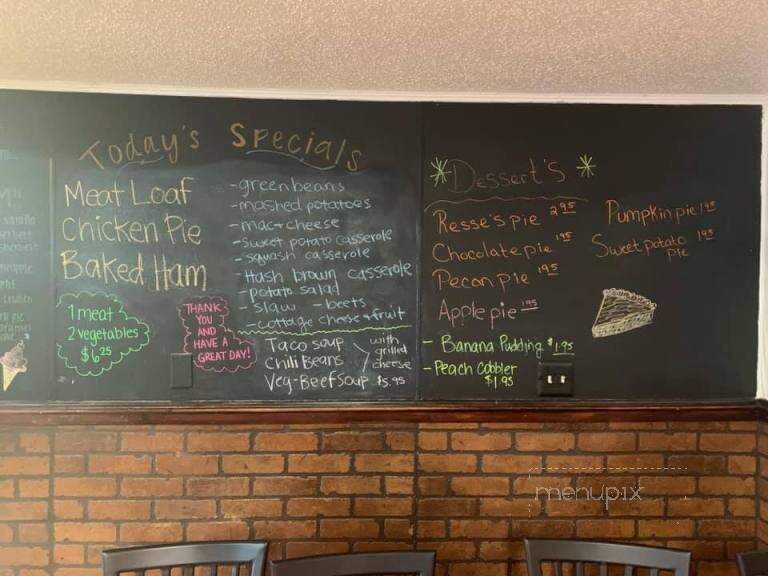 Today's Specials
Meat Loaf
Chicken Pie
Baked Ham
1 meat
2 vegetables
$6.25
THANK
YOU
AND
HAVE A
GREAT DAY!
- green beans
- mashed potatoes
- mac + cheese
- sweet potato casserole
- squash casserole
- Hash brown casserole
- potato salad
- slaw - beets
- cottage cheese + fruit
Taco soup
Chili Beans
Veg-Beef Soup $5.95
with
grilled
cheese
* Dessert's *
Resse's pie 2.95
Chocolate pie 1.95
Pecan pie 1.95
Apple pie 1.95
- Banana Pudding $1.95
- Peach Cobbler
$1.95
Pumpkin pie 1.95
Sweet potato 1.95
pie
menupix